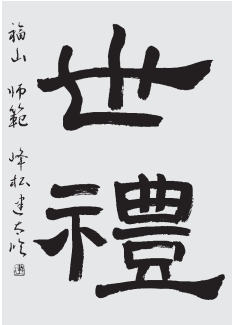 世禮
福山 師範 峰松建太修